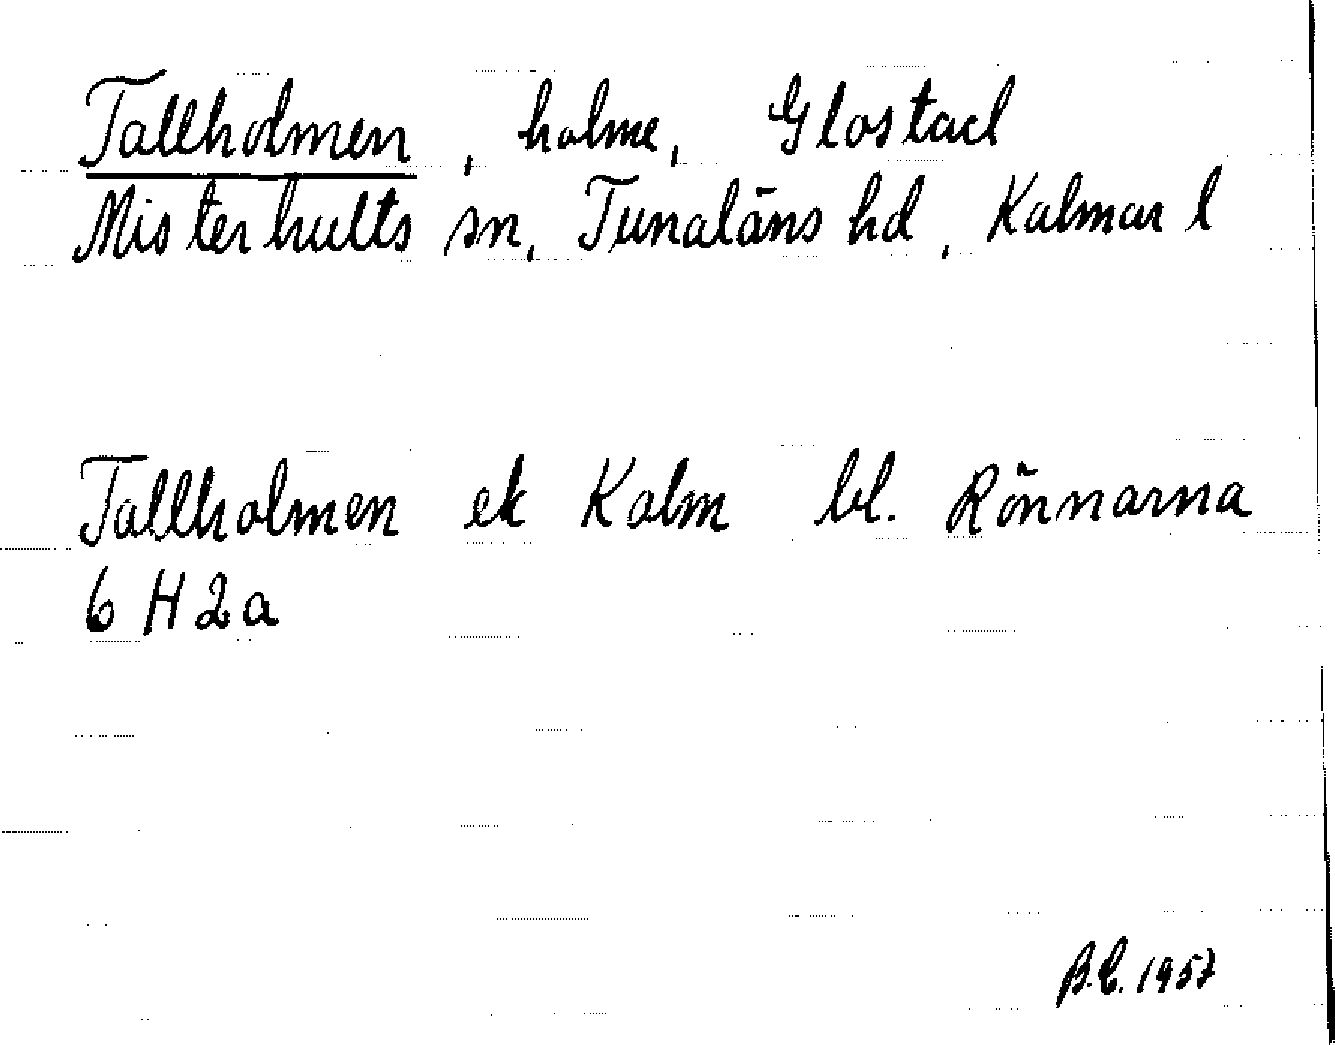 Tallholmen, holme, Glostad
Misterhults sn, Tunaläns hd, Kalmar l
Tallholmen ek Kalm bl. Rönnarna
6 H 2 a
B.C. 1957